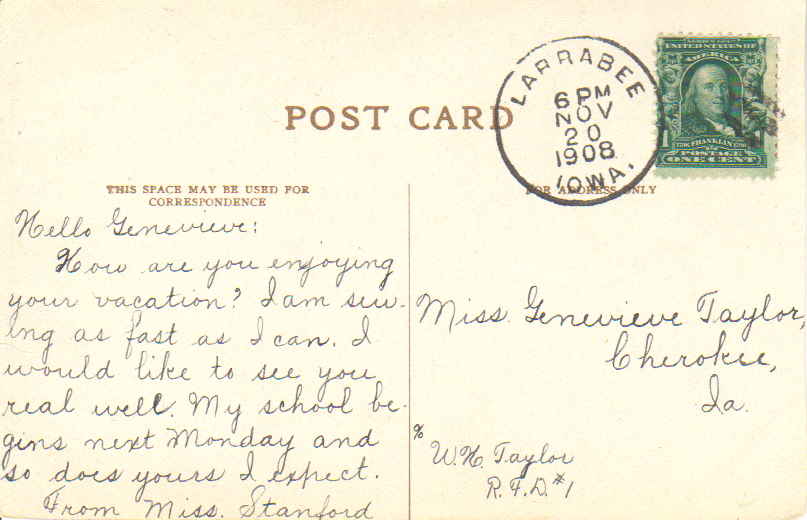 LARRABEE
6 PM
NOV
20
1908
IOWA.
UNITED STATES OF
AMERICA
1
FRANKLIN
POSTAGE
ONE CENT
POST CARD
THIS SPACE MAY BE USED FOR
CORRESPONDENCE
FOR ADDRESS ONLY
Hello Genevieve:
How are you enjoying
your vacation? I am sew-
ing as fast as I can. I
would like to see you
real well. My school be-
gins next Monday and
so does yours I expect.
From Miss. Stanford
Miss. Genevieve Taylor,
Cherokee,
Ia.
%
W. H. Taylor
R. F. D. #1